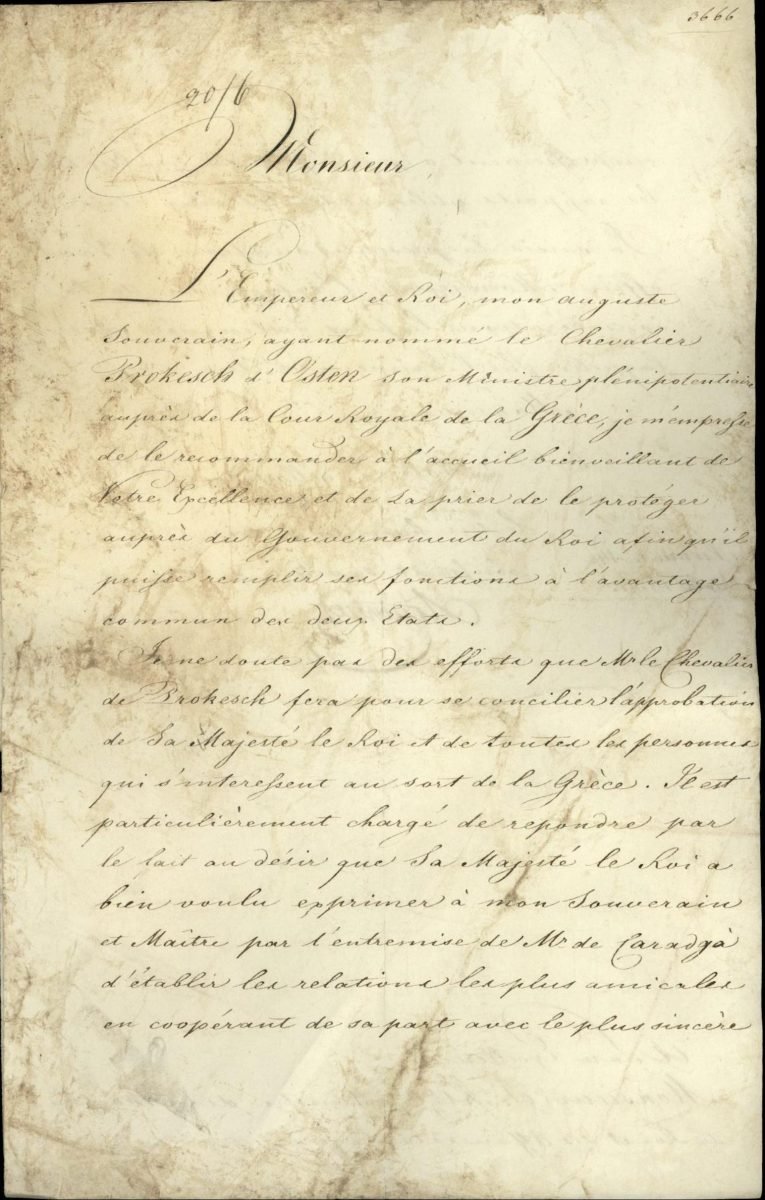 3666
20/6
Monsieur
L'Empereur et Roi, mon auguste
Souverain, ayant nommé le Chevalier
Prokesch d'Osten son Ministre plénipotentiaire
auprès de la Cour Royale de la Grèce, je m'empresse
de le recommander à l'accueil bienveillant de
Votre Excellence et de La prier de le protéger
auprès du Gouvernement du Roi afin qu'il
puisse remplir ses fonctions à l'avantage
commun des deux Etats.
Je ne doute pas des efforts que Mr le Chevalier
de Prokesch fera pour se concilier l'approbation
de Sa Majesté le Roi et de toutes les personnes
qui s'interessent au sort de la Grèce. Il est
particulièrement chargé de repondre par
le fait au désir que Sa Majesté le Roi a
bien voulu exprimer à mon Souverain
et Maître par l'entremise de Mr de Caradgà
d'établir les relations les plus amicales
en coopérant de sa part avec le plus sincère